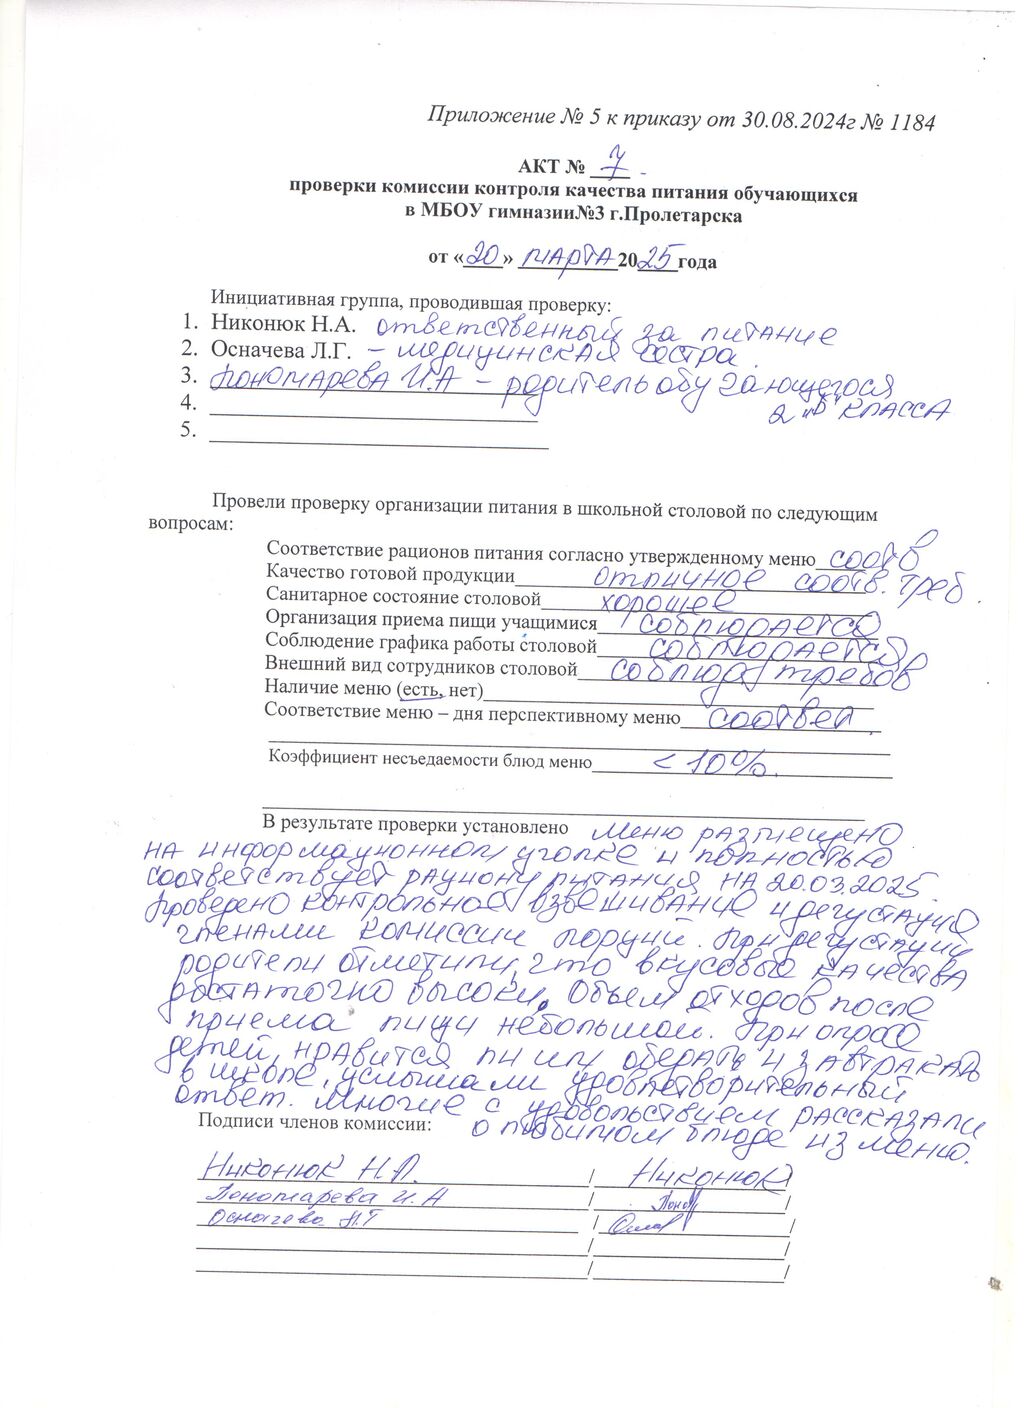 Приложение № 5 к приказу от 30.08.2024г № 1184
АКТ № 7
проверки комиссии контроля качества питания обучающихся
в МБОУ гимназии№3 г.Пролетарска
от «20» марта 2025 года
Инициативная группа, проводившая проверку:
1. Никонюк Н.А. ответственный за питание
2. Осначева Л.Г. – медицинская сестра.
3. Пономарева И.А – родитель обучающегося
2 "Б" класса
4.
5.
Провели проверку организации питания в школьной столовой по следующим
вопросам:
Соответствие рационов питания согласно утвержденному меню соотв
Качество готовой продукции отличное соотв. треб.
Санитарное состояние столовой хорошее
Организация приема пищи учащимися соблюдается
Соблюдение графика работы столовой соблюдается
Внешний вид сотрудников столовой соблюд. требов
Наличие меню (есть, нет)
Соответствие меню – дня перспективному меню соответ.
Коэффициент несъедаемости блюд меню < 10%.
В результате проверки установлено меню размещено
на информационном уголке и полностью
соответствует рациону питания на 20.03.2025.
Проверено контрольное взвешивание и дегустацию
членами комиссии порций. При дегустации
родители отметили, что вкусовые качества
достаточно высоки. Объем отходов после
приема пищи небольшой. При опросе
детей, нравится ли им обедать и завтракать
в школе, услышали удовлетворительный
ответ. Многие с удовольствием рассказали
Подписи членов комиссии: о любимом блюде из меню.
Никонюк Н.А. / Никонюк /
Пономарева И.А / Поном /
Осначева Л.Г / /
/ /
/ /